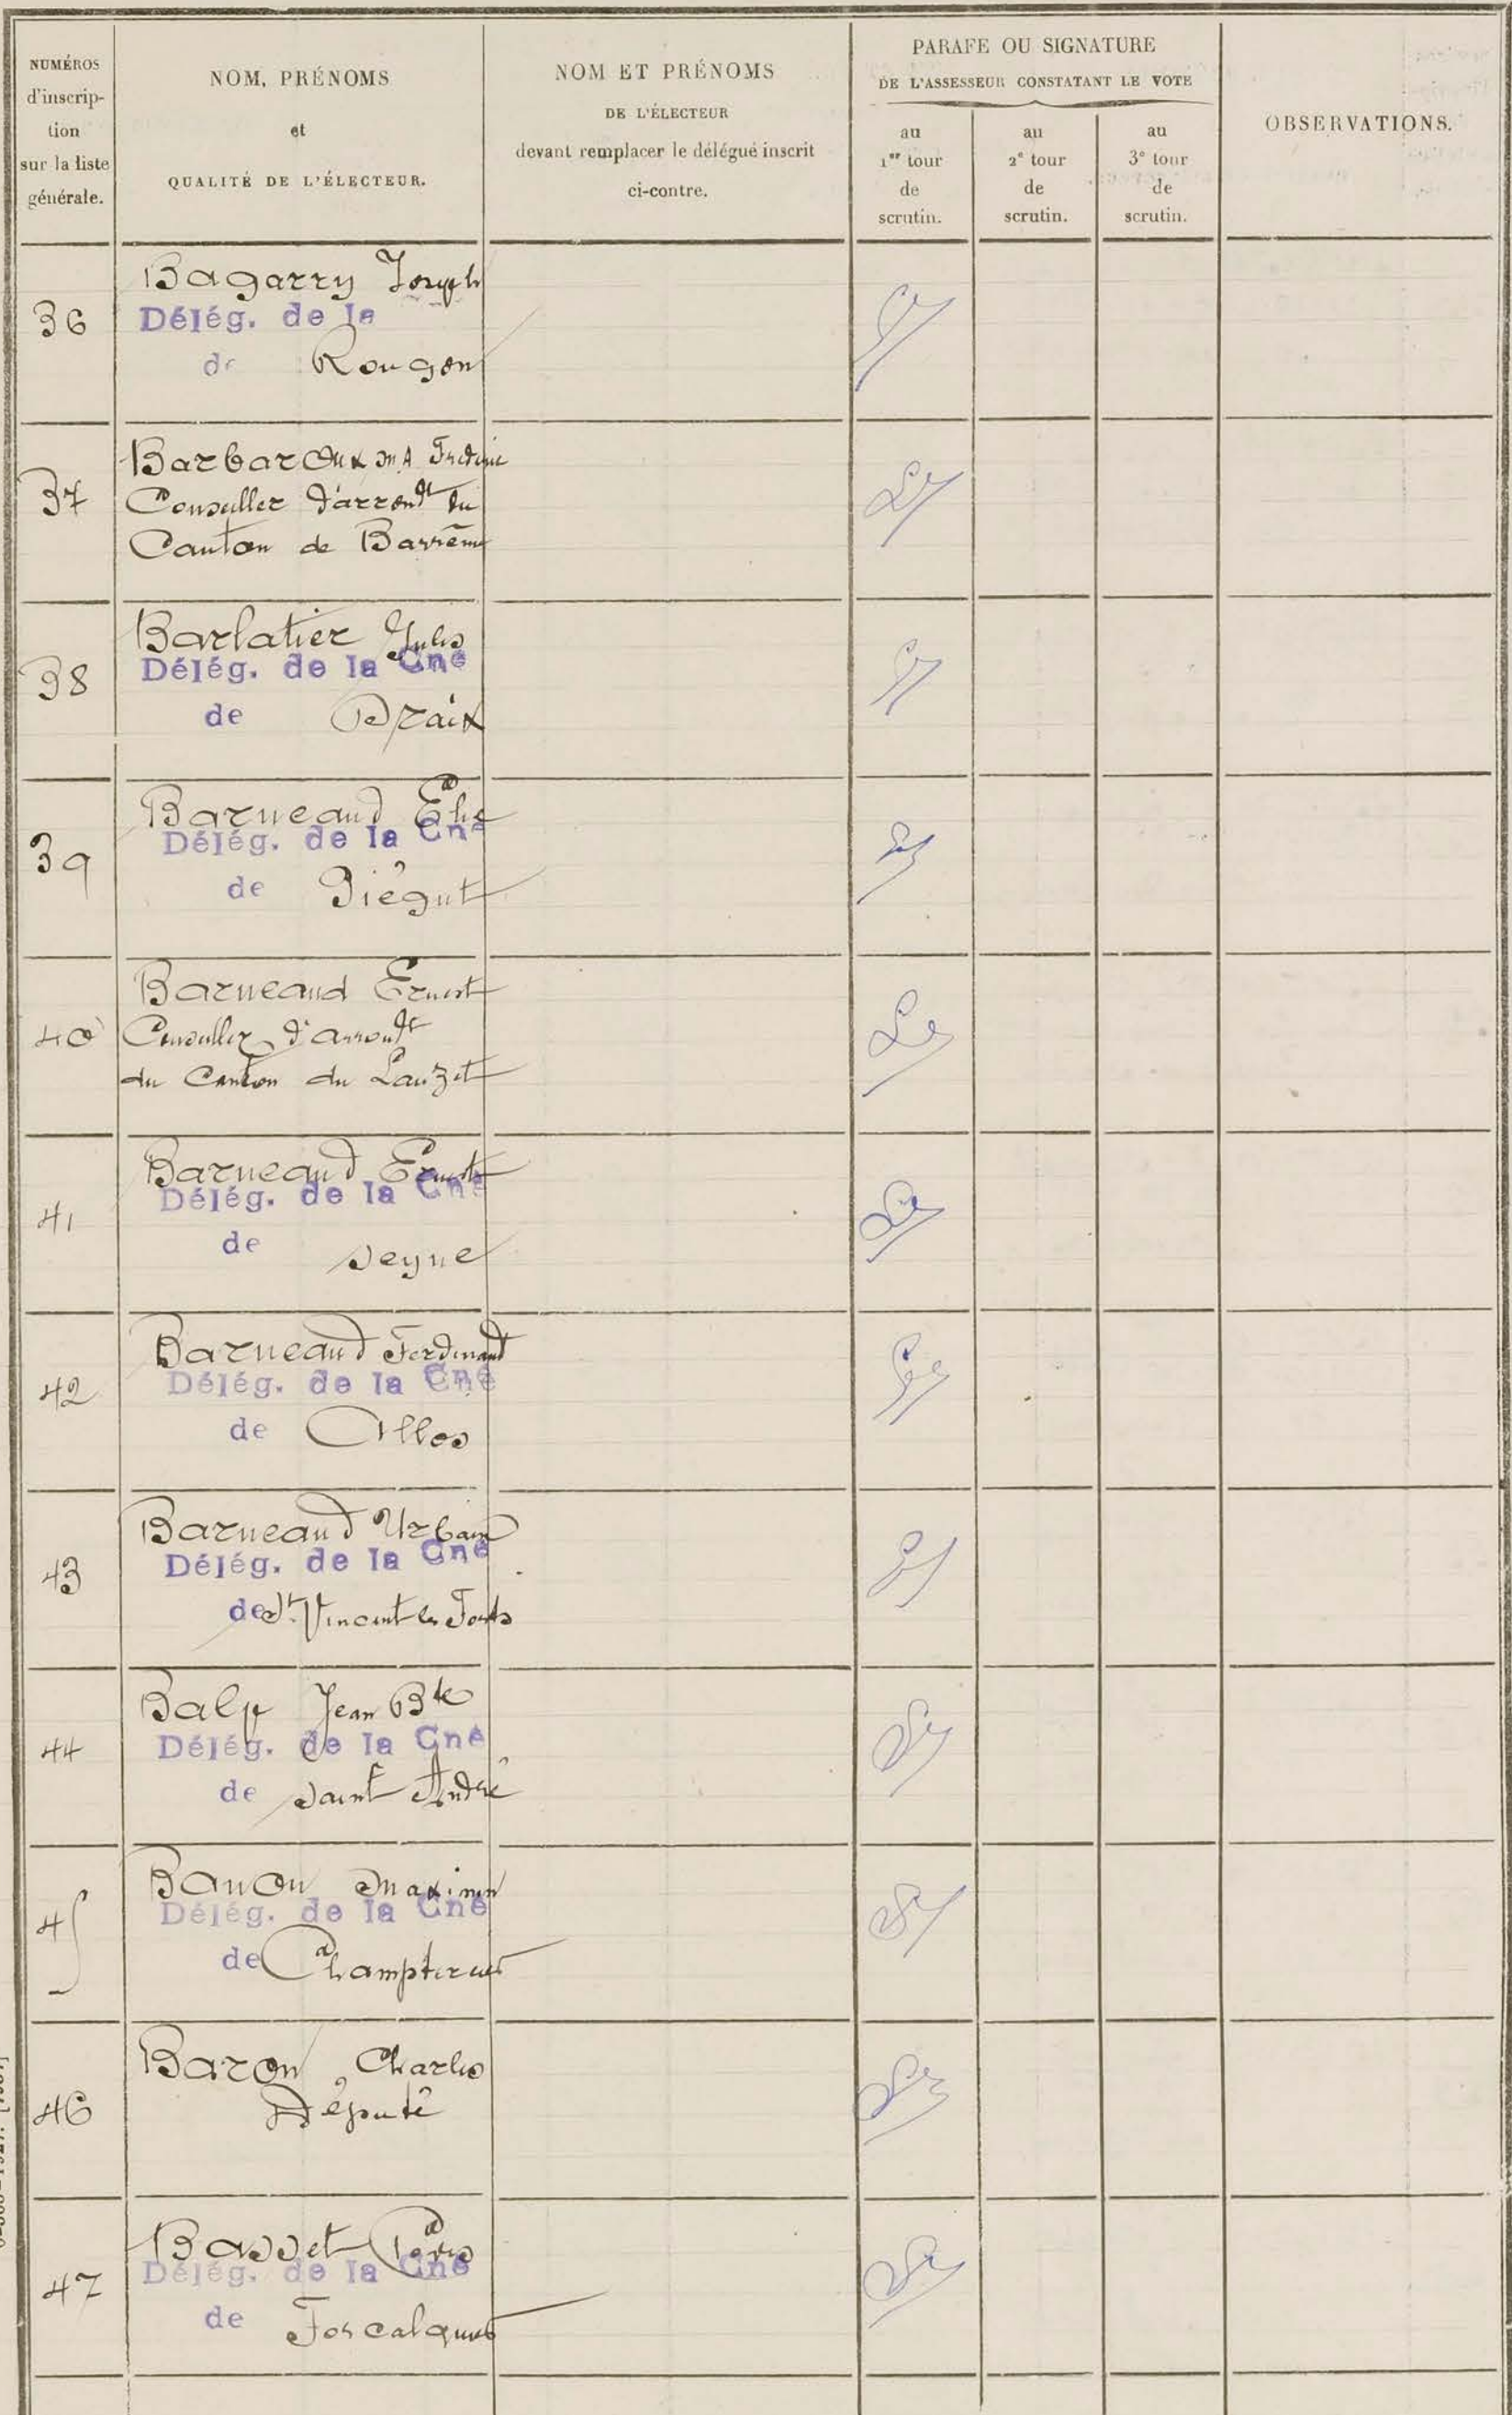 NUMÉROS
d'inscrip-
tion
sur la liste
générale.
NOM, PRÉNOMS
et
QUALITÉ DE L'ÉLECTEUR.
NOM ET PRÉNOMS
DE L'ÉLECTEUR
devant remplacer le délégué inscrit
ci-contre.
PARAFE OU SIGNATURE
DE L'ASSESSEUR CONSTATANT LE VOTE
au
1er tour
de
scrutin.
au
2e tour
de
scrutin.
au
3e tour
de
scrutin.
OBSERVATIONS.
36
Bagarry Joseph
Délég. de la
de Rougon
37
Barbaroux M.A Frédéric
Conseiller d'arrondt du
Canton de Barrême
38
Barlatier Jules
Délég. de la Cne
de Draix
39
Barneaud Elie
Délég. de la Cne
de Piégut
40
Barneaud Ernest
Conseiller d'arrondt
du Canton du Lauzet
41
Barneaud Ernest
Délég. de la Cne
de Seyne
42
Barneaud Ferdinand
Délég. de la Cne
de Allos
43
Barneaud Urbain
Délég. de la Cne
de St Vincent les Forts
44
Balp Jean Bte
Délég. de la Cne
de Saint André
45
Banon Maximin
Délég. de la Cne
de Champtercier
46
Baron Charles
Député
47
Basset
Délég. de la Cne
de Forcalquier